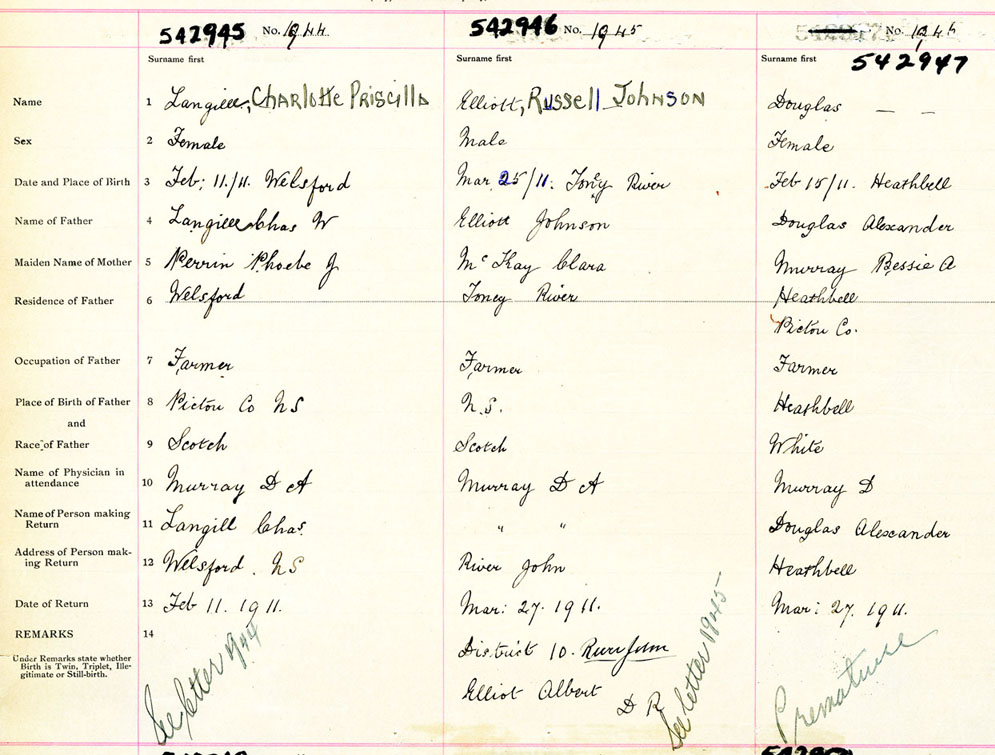 542945 No. 1944
542946 No. 1945
No. 1946
542947
Surname first Surname first Surname first
Name 1 Langille, Charlotte Priscilla Elliott, Russell Johnson Douglas — —
Sex 2 Female Male Female
Date and Place of Birth 3 Feb; 11/11. Welsford Mar 25/11. Toney River Feb 15/11. Heathbell
Name of Father 4 Langille Chas W Elliott Johnson Douglas Alexander
Maiden Name of Mother 5 Perrin Phoebe J McKay Clara Murray Bessie A
Residence of Father 6 Welsford Toney River Heathbell
Pictou Co.
Occupation of Father 7 Farmer Farmer Farmer
Place of Birth of Father 8 Pictou Co NS N.S. Heathbell
and
Race of Father 9 Scotch Scotch White
Name of Physician in
attendance 10 Murray D A Murray D A Murray D
Name of Person making
Return 11 Langill Chas. " " Douglas Alexander
Address of Person mak-
ing Return 12 Welsford. NS River John Heathbell
Date of Return 13 Feb 11. 1911. Mar: 27. 1911. Mar: 27. 1911.
REMARKS 14
Under Remarks state whether
Birth is Twin, Triplet, Ille-
gitimate or Still-birth.
See letter 1944
District 10. River John
Elliot Albert
D R
See letter 1945
Premature